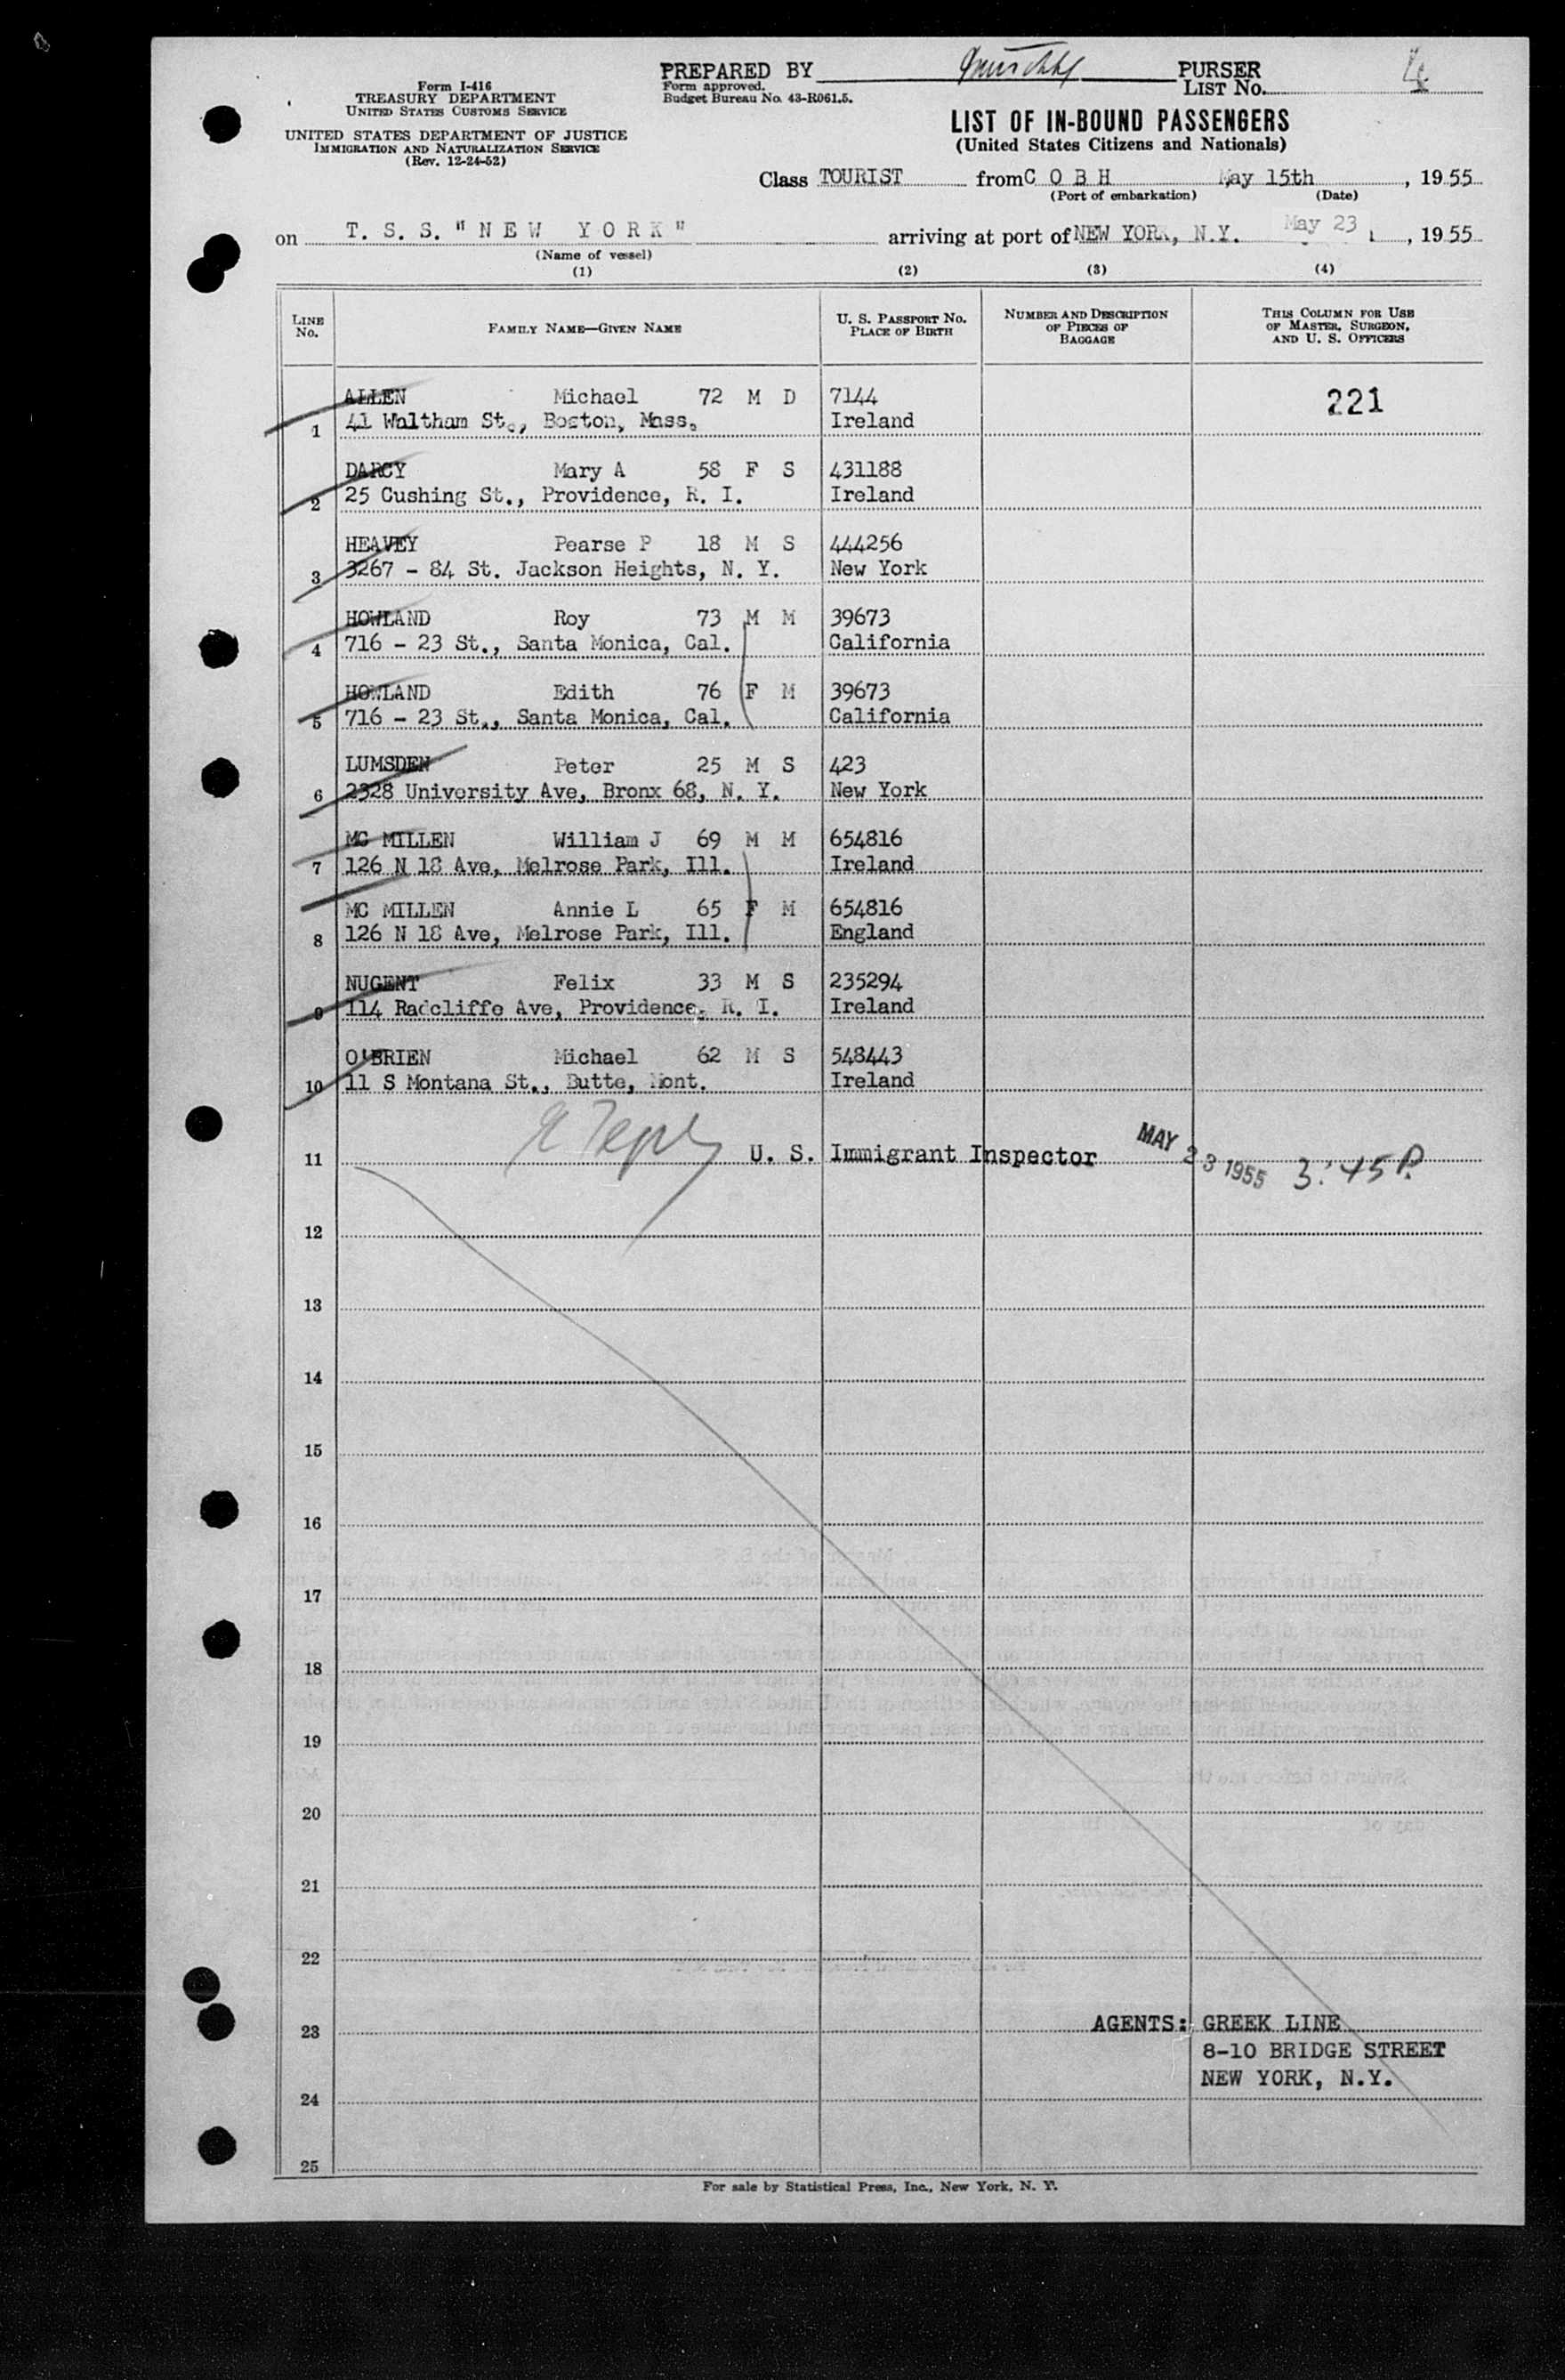 PREPARED BY PURSER
Form approved.
Budget Bureau No. 43-R061.5.
LIST No. 4
Form I-416
TREASURY DEPARTMENT
UNITED STATES CUSTOMS SERVICE
UNITED STATES DEPARTMENT OF JUSTICE
IMMIGRATION AND NATURALIZATION SERVICE
(Rev. 12-24-52)
LIST OF IN-BOUND PASSENGERS
(United States Citizens and Nationals)
Class TOURIST from C O B H May 15th, 1955
(Port of embarkation) (Date)
on T. S. S. "N E W Y O R K" arriving at port of NEW YORK, N.Y. May 23, 1955
(Name of vessel)
(1) (2) (3) (4)
LINE No. FAMILY NAME—GIVEN NAME U. S. PASSPORT No. PLACE OF BIRTH NUMBER AND DESCRIPTION OF PIECES OF BAGGAGE THIS COLUMN FOR USE OF MASTER, SURGEON, AND U. S. OFFICERS
ALLEN Michael 72 M D 7144 221
1 41 Waltham St., Boston, Mass. Ireland
DARCY Mary A 58 F S 431188
2 25 Cushing St., Providence, R. I. Ireland
HEAVEY Pearse P 18 M S 444256
3 3267 - 84 St. Jackson Heights, N. Y. New York
HOWLAND Roy 73 M M 39673
4 716 - 23 St., Santa Monica, Cal. California
HOWLAND Edith 76 F M 39673
5 716 - 23 St., Santa Monica, Cal. California
LUMSDEN Peter 25 M S 423
6 2328 University Ave, Bronx 68, N. Y. New York
MC MILLEN William J 69 M M 654816
7 126 N 18 Ave, Melrose Park, Ill. Ireland
MC MILLEN Annie L 65 F M 654816
8 126 N 18 Ave, Melrose Park, Ill. England
NUGENT Felix 33 M S 235294
9 114 Radcliffe Ave, Providence, R. I. Ireland
O'BRIEN Michael 62 M S 548443
10 11 S Montana St., Butte, Mont. Ireland
11 U. S. Immigrant Inspector MAY 23 1955 3:45 P.
12
13
14
15
16
17
18
19
20
21
22
23 AGENTS: GREEK LINE
8-10 BRIDGE STREET
NEW YORK, N.Y.
24
25
For sale by Statistical Press, Inc., New York, N. Y.